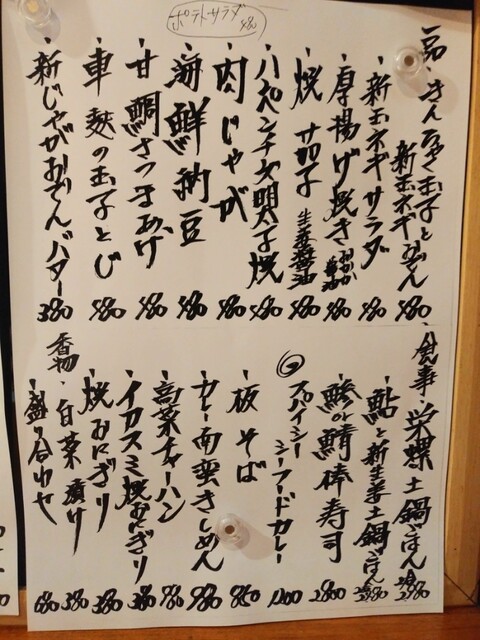 ポテトサラダ 480
一品
・きんちゃく玉子と新玉ネギおでん 480
・新玉ネギサラダ 480
・厚揚げ焼き おかか醤油 480
・焼茄子 生姜醤油 480
・ハムペンチーズ明太子焼 480
・肉じゃが 480
・海鮮納豆 480
・甘鯛さつまあげ 480
・車麩の玉子とじ 480
・新じゃがおでんバター 380
・食事
・栄螺土鍋ごはん 2980
・鮎と新生姜土鍋ごはん 2980
・鯵か鯖棒寿司 2800
◎スパイシーシーフードカレー 1200
・板そば 850
・カレー南蛮きしめん 980
・高菜チャーハン 780
・イカスミ焼おにぎり 380
・焼おにぎり 380
香物
・白菜漬け 380
・盛り合わせ 680